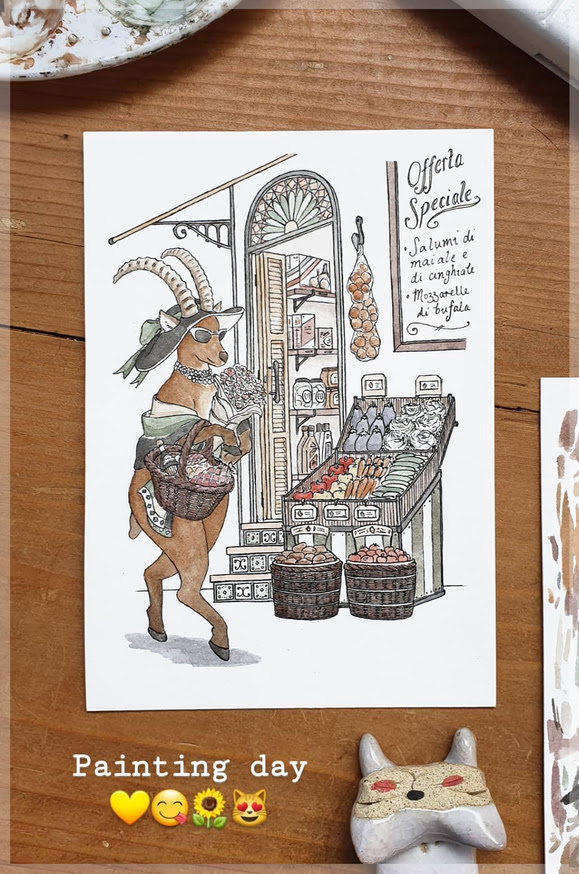 Offerta
Speciale
• Salumi di
maiale e
di cinghiale
• Mozzarelle
di bufala
Painting day